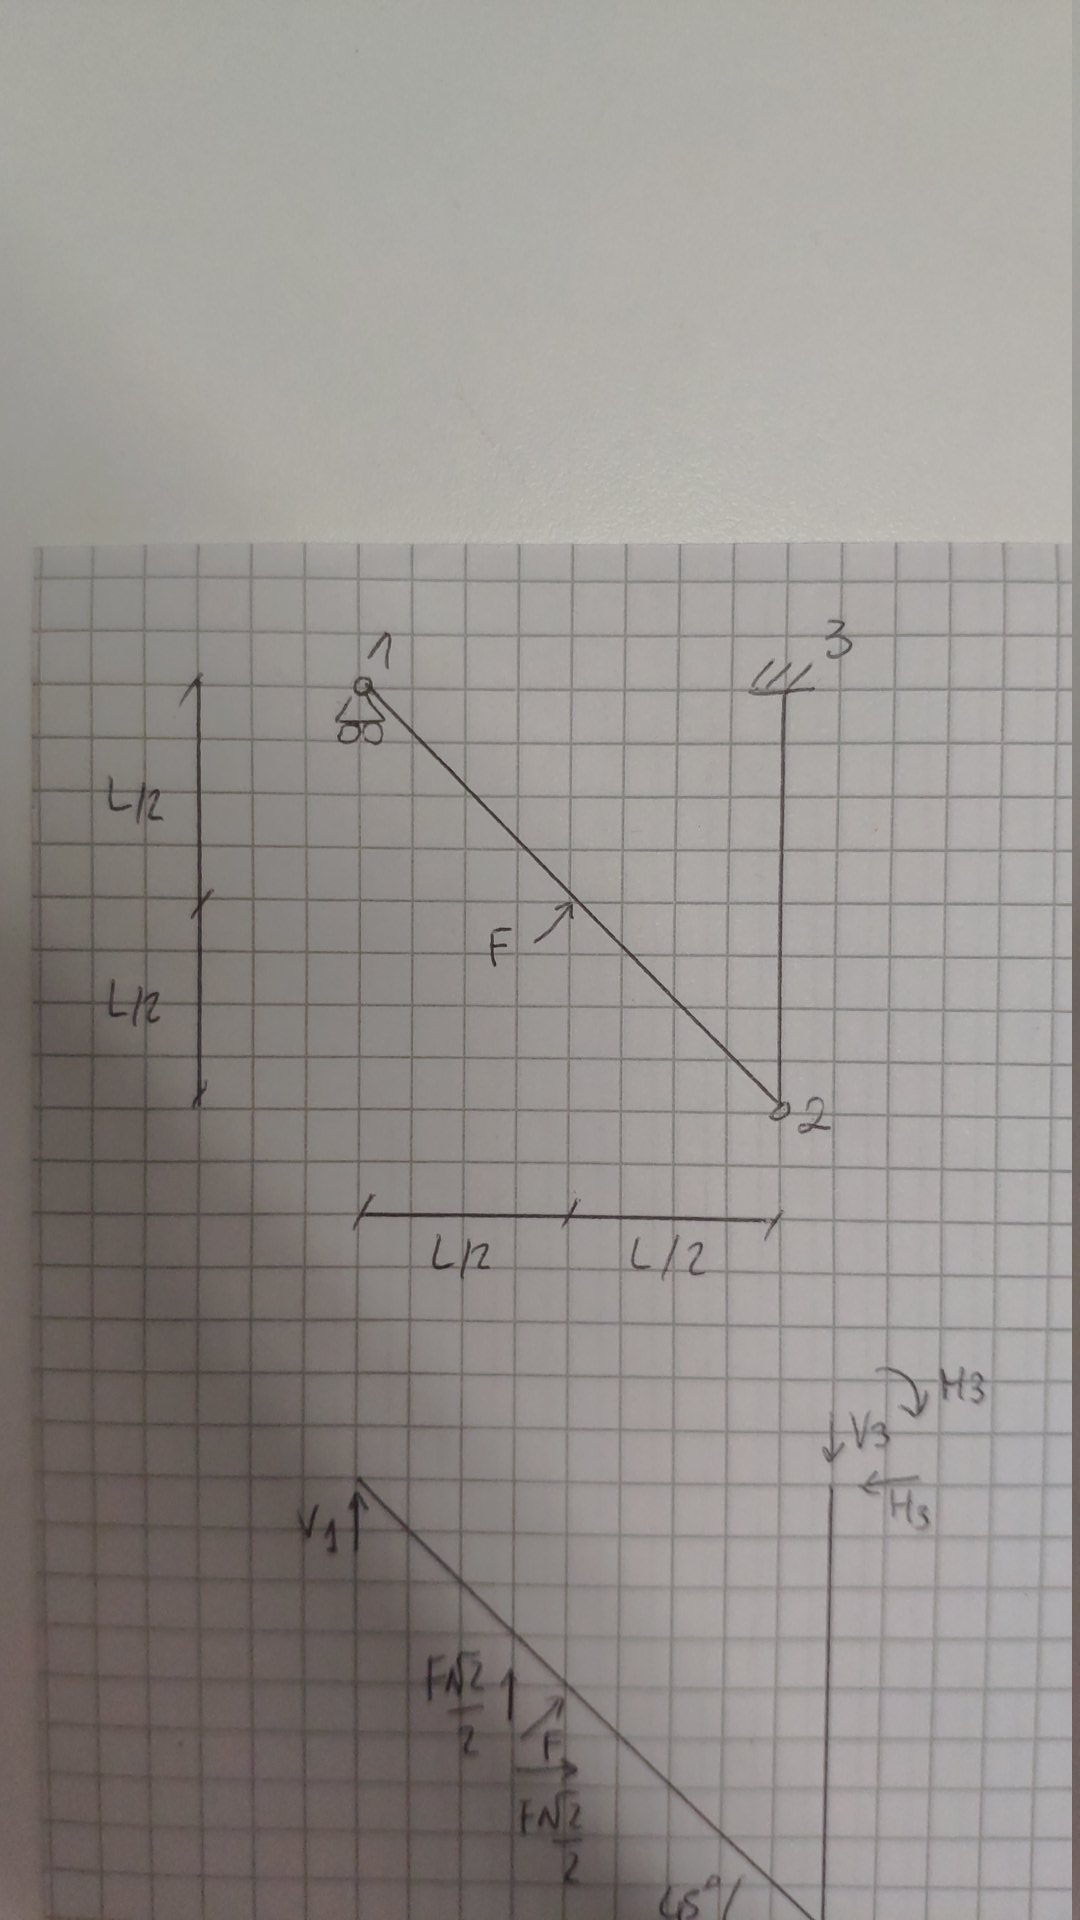 1
3
L/2
F
L/2
2
L/2 L/2
M3
V3
H3
V1
F√2/2
F
F√2/2
45°